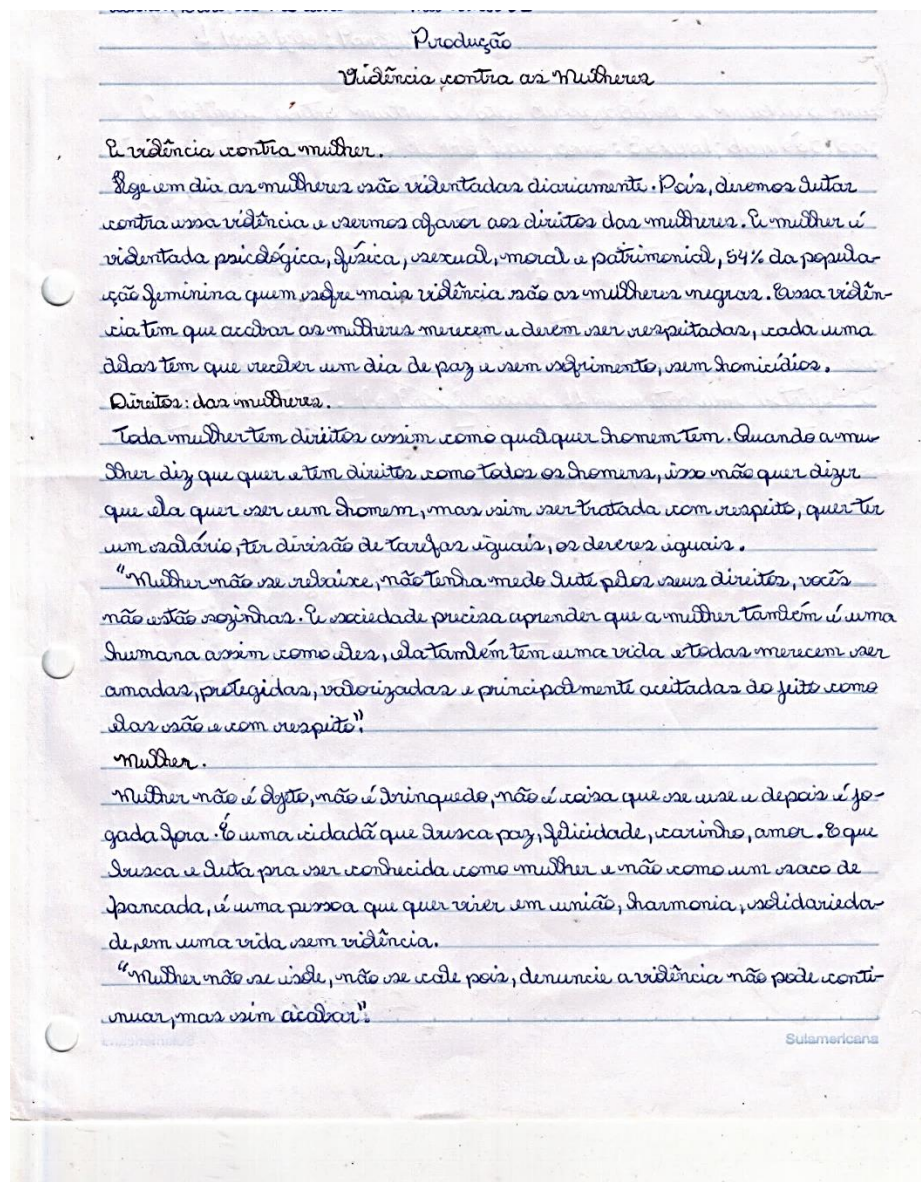 Produção
Violência contra as Mulheres
A violência contra mulher.
Hoje em dia as mulheres são violentadas diariamente. Pois, devemos lutar
contra essa violência e sermos afavor aos direitos das mulheres. A mulher é
violentada psicológica, física, sexual, moral e patrimonial, 54% da popula-
ção feminina quem sofre mais violência são as mulheres negras. Essa violên-
cia tem que acabar as mulheres merecem e devem ser respeitadas, cada uma
delas tem que receber um dia de paz e sem sofrimento, sem homicídios.
Direitos: das mulheres.
Toda mulher tem direitos assim como qualquer homem tem. Quando a mu-
lher diz que quer e tem direitos como todos os homens, isso não quer dizer
que ela quer ser um homem, mas sim ser tratada com respeito, quer ter
um salário, ter divisão de tarefas iguais, os deveres iguais.
"Mulher não se rebaixe, não tenha medo lute pelos seus direitos, vocês
não estão sozinhas. A sociedade precisa aprender que a mulher também é uma
humana assim como eles, ela também tem uma vida e todas merecem ser
amadas, protegidas, valorizadas e principalmente aceitadas do jeito como
elas são e com respeito".
Mulher.
Mulher não é objeto, não é brinquedo, não é coisa que se use e depois é jo-
gada fora. É uma cidadã que busca paz, felicidade, carinho, amor. E que
busca e luta pra ser conhecida como mulher e não como um saco de
pancada, é uma pessoa que quer viver em união, harmonia, solidarieda-
de, em uma vida sem violência.
"Mulher não se isole, não se cale pois, denuncie a violência não pode conti-
nuar, mas sim acabar".
Sulamericana